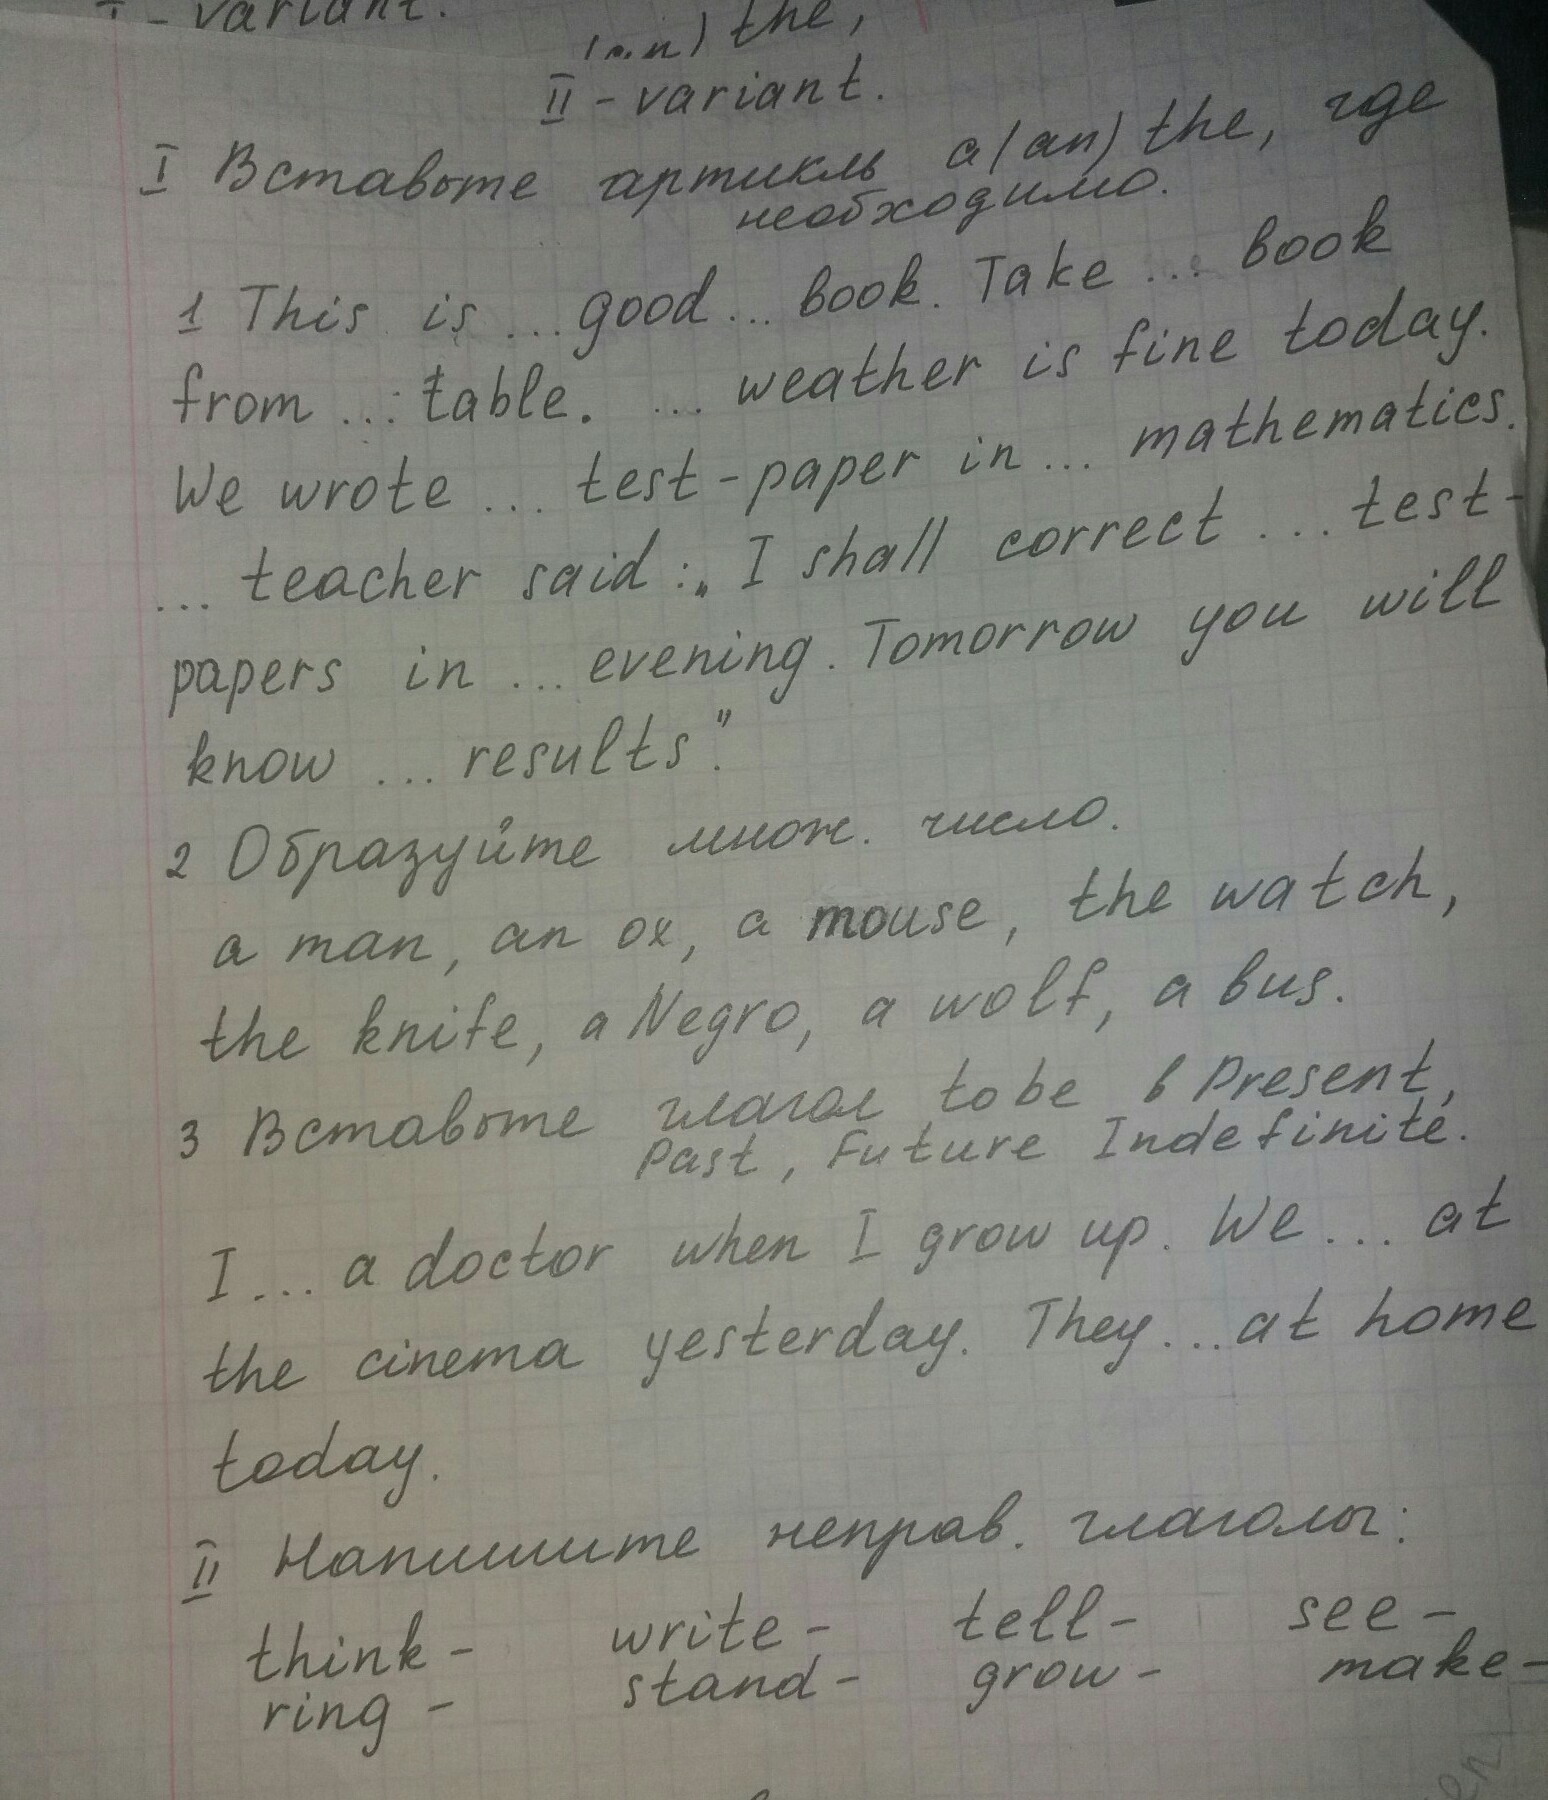 I - variant.
(an) the,
II - variant.
I Вставьте артикль a (an) the, где
необходимо.
1 This is ... good ... book. Take ... book
from ... table. ... weather is fine today.
We wrote ... test-paper in ... mathematics.
... teacher said: „ I shall correct ... test-
papers in ... evening. Tomorrow you will
know ... results".
2 Образуйте множ. число.
a man, an ox, a mouse, the watch,
the knife, a Negro, a wolf, a bus.
3 Вставьте глагол to be в Present,
Past, Future Indefinite.
I ... a doctor when I grow up. We ... at
the cinema yesterday. They ... at home
today.
II Напишите неправ. глаголы:
think - write - tell - see -
ring - stand - grow - make -